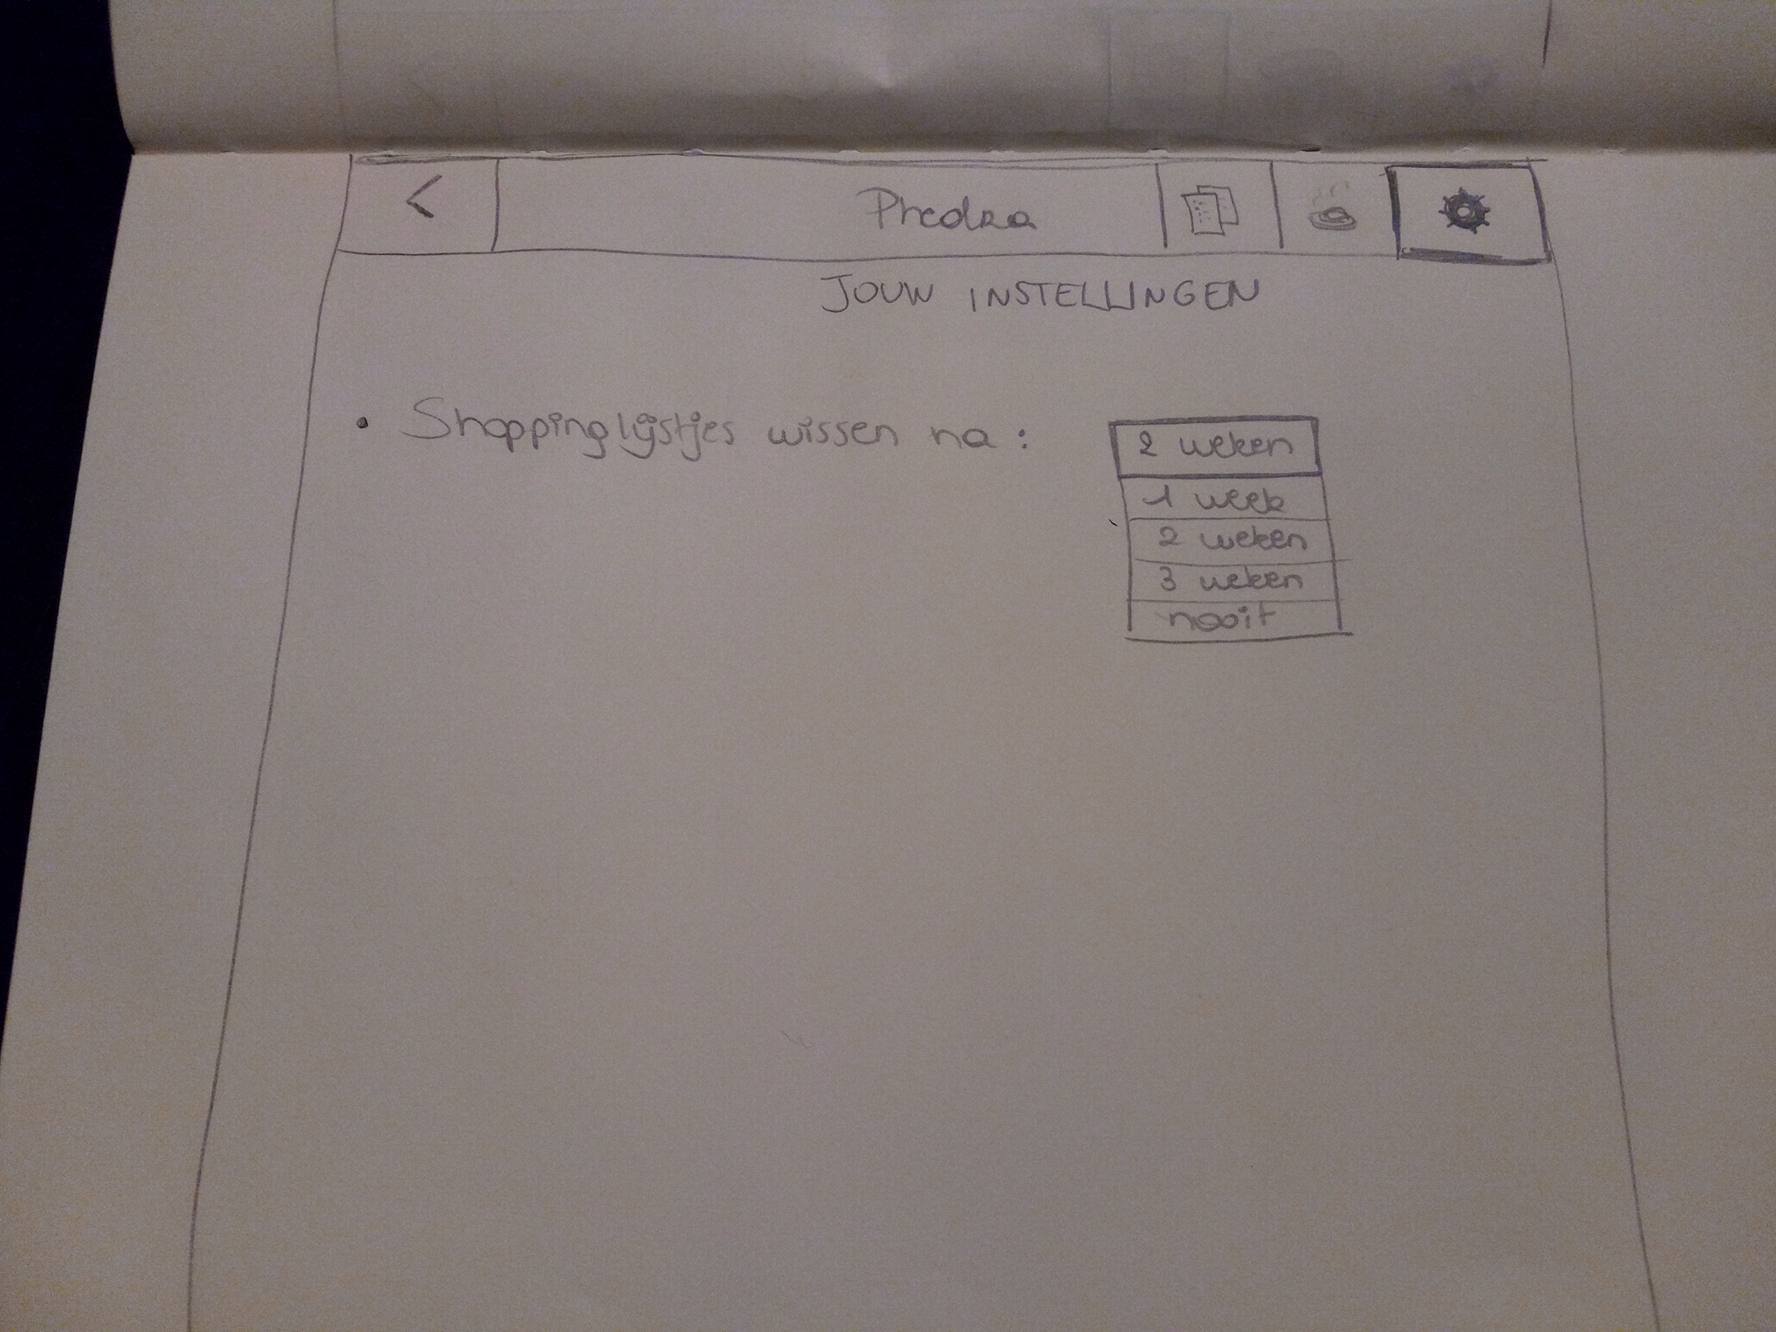 Phedra
JOUW INSTELLINGEN
• Shoppinglijstjes wissen na :
2 weken
1 week
2 weken
3 weken
nooit